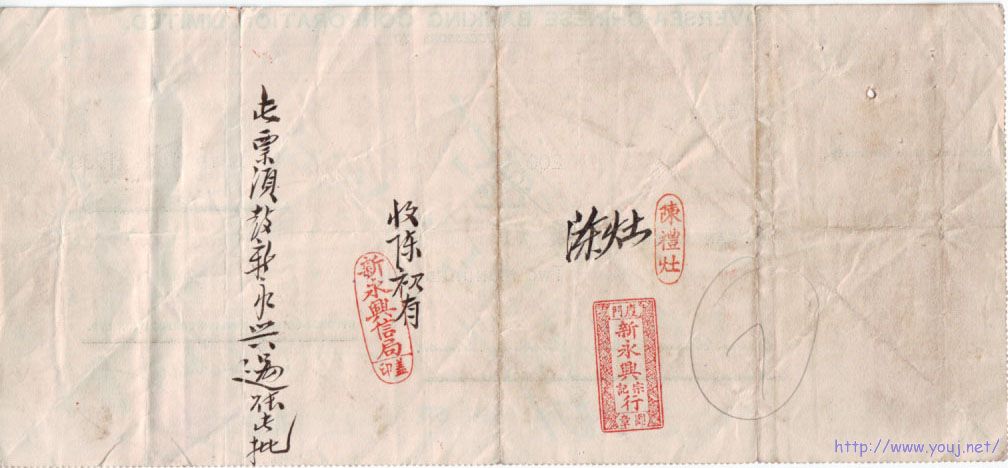 OVERSEA-CHINESE BANKING CORPORATION LIMITED.
陳禮灶
陈灶
厦門
新永興
宗記行
圖章
收陈初有
新永興信局
蓋印
此票湏 新永兴過账此批
http://www.youj.net/